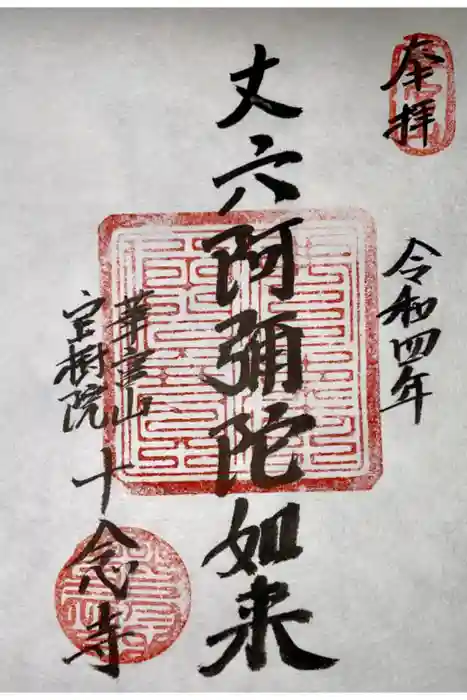 奉拝
令和四年
丈六阿彌陀如来
華宮山
宝樹院
十念寺